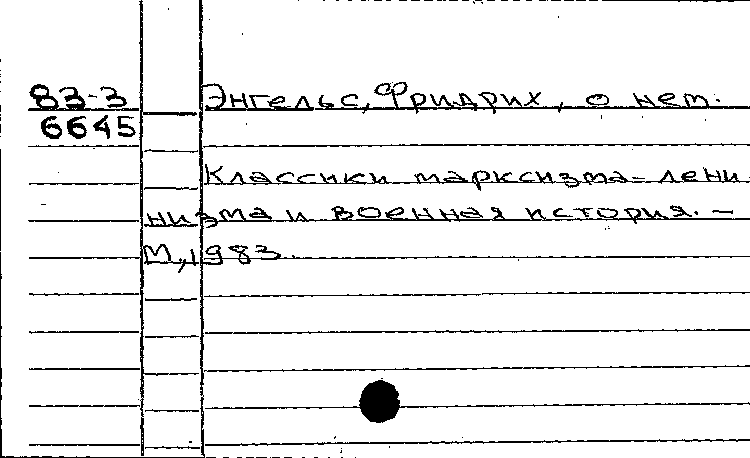 83-3 Энгельс, Фридрих, о нем.
6645
Классики марксизма-лени
низма и военная история. -
М, 1983.